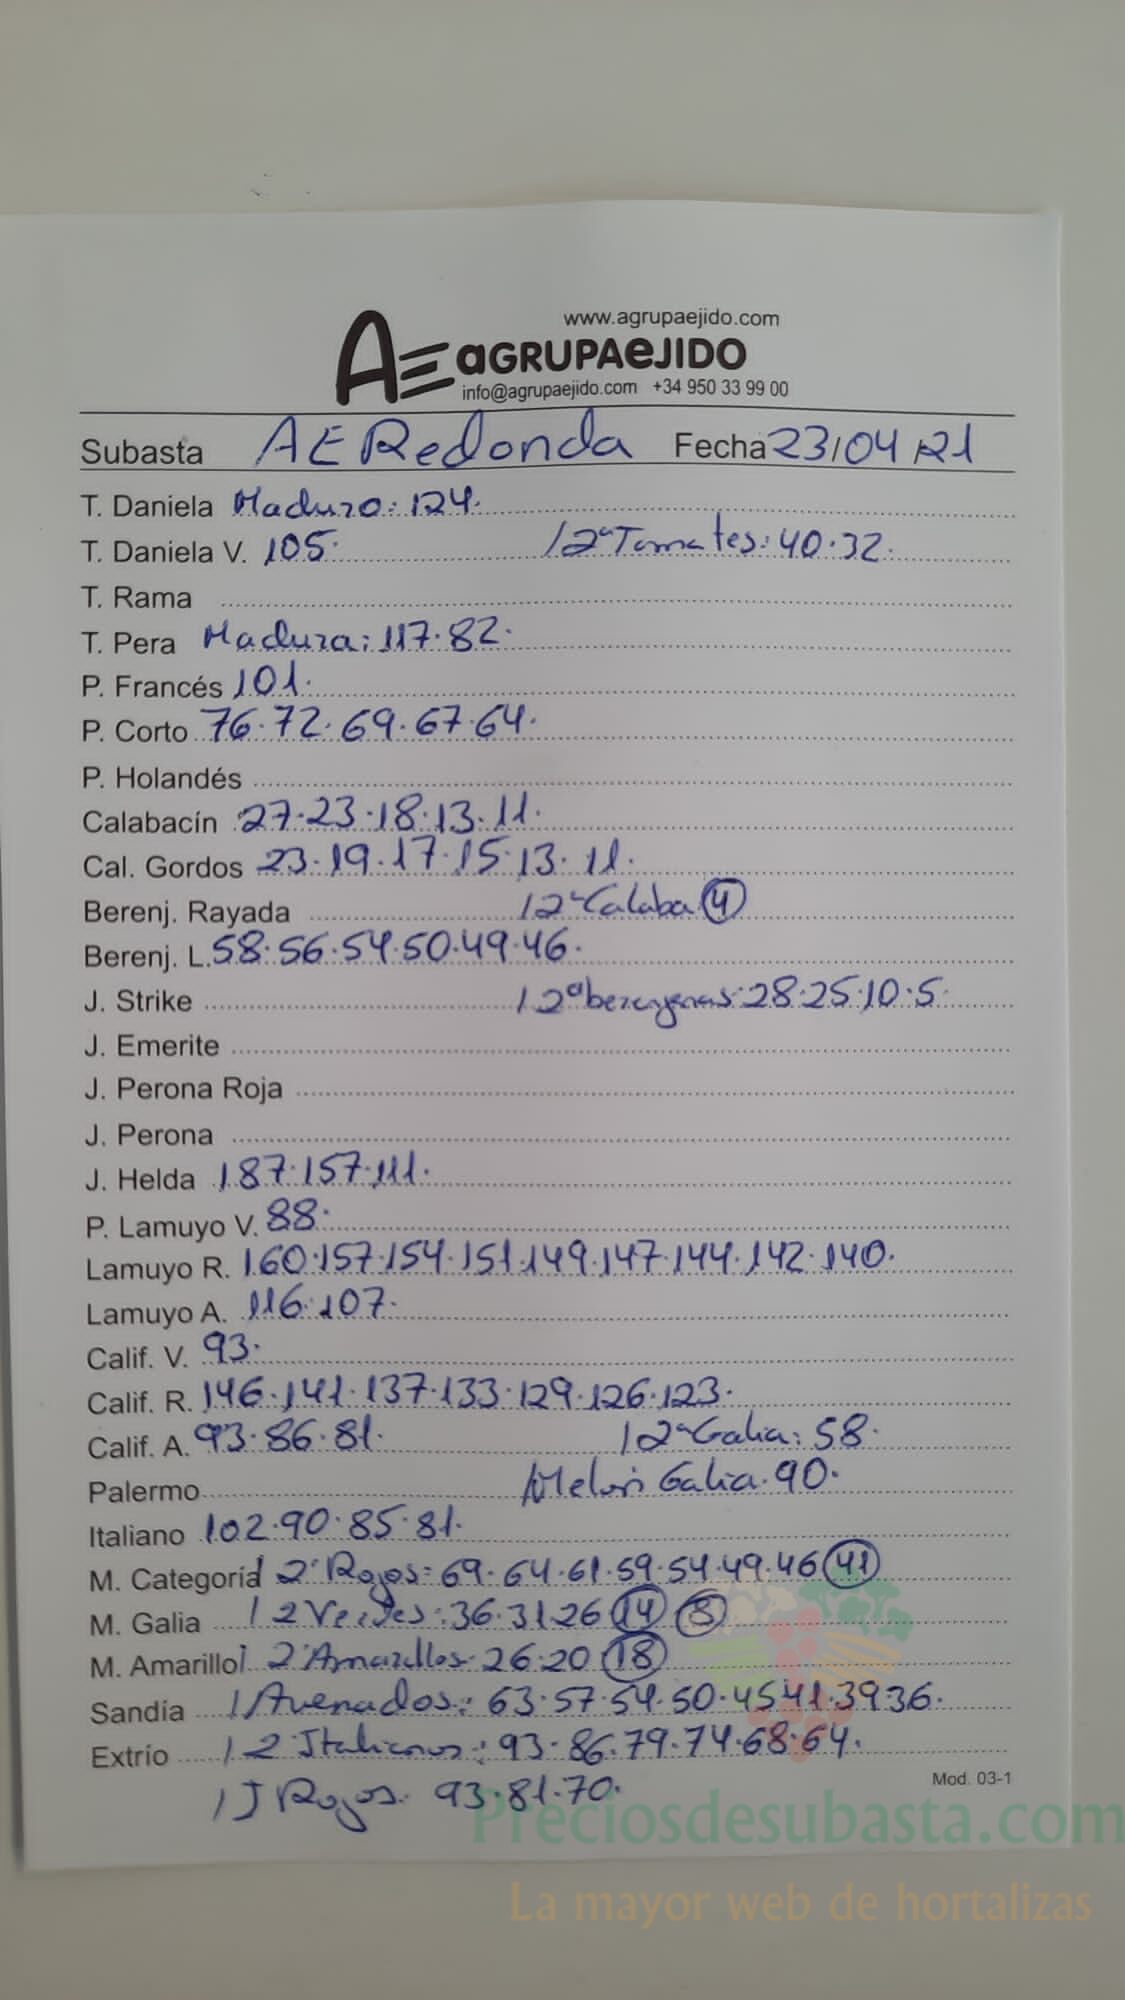 www.agrupaejido.com
AE aGRUPAeJIDO
info@agrupaejido.com +34 950 33 99 00
Subasta AE Redonda Fecha 23/04/21
T. Daniela Maduro: 124.
T. Daniela V. 105. / 2ª Tomates: 40.32.
T. Rama
T. Pera Madura: 117.82.
P. Francés 101.
P. Corto 76.72.69.67.64.
P. Holandés
Calabacín 27.23.18.13.11.
Cal. Gordos 23.19.17.15.13.11.
Berenj. Rayada / 2ª Calaba 4
Berenj. L. 58.56.54.50.49.46.
J. Strike / 2ª berengenas: 28.25.10.5.
J. Emerite
J. Perona Roja
J. Perona
J. Helda 187.157.111.
P. Lamuyo V. 88.
Lamuyo R. 160.157.154.151.149.147.144.142.140.
Lamuyo A. 116.107.
Calif. V. 93.
Calif. R. 146.141.137.133.129.126.123.
Calif. A. 93.86.81. / 2ª Galia: 58.
Palermo / Melon Galia. 90.
Italiano 102.90.85.81.
M. Categoría / 2ª Rojos: 69.64.61.59.54.49.46 41
M. Galia / 2 Verdes: 36.31.26 14 8
M. Amarillo / 2ª Amarillos. 26.20 18
Sandía / Avenados: 63.57.54.50.45.41.39.36.
Extrío / 2 Italianos: 93.86.79.74.68.64.
/ J Rojos. 93.81.70.
Mod. 03-1
Preciosdesubasta.com
La mayor web de hortalizas